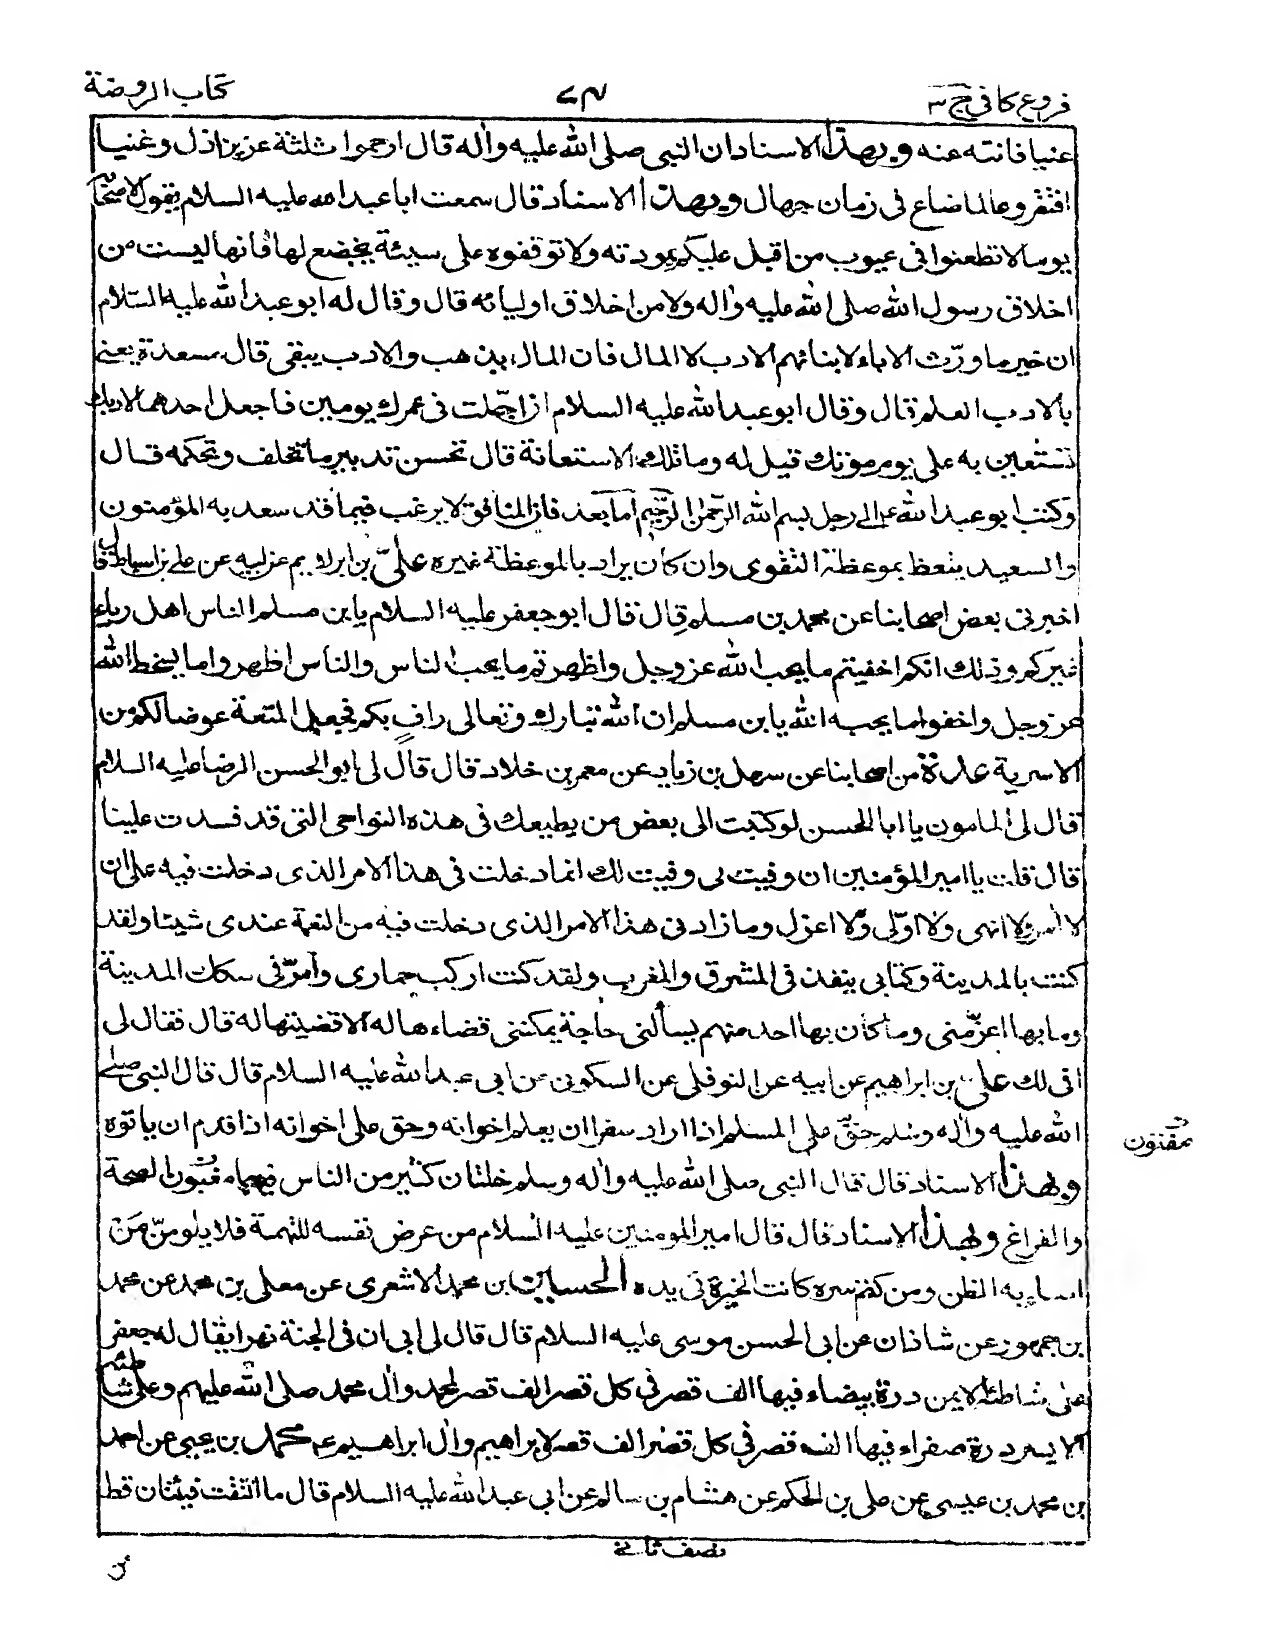 فروع كافى ج ٣
٧٤
كتاب الروضة
غنيا فانته عنه وبهذا الاسناد ان النبى صلى الله عليه وآله قال ارحموا ثلثة عزيزا ذل وغنيا
افتقر وعالما ضاع فى زمان جهال وبهذا الاسناد قال سمعت ابا عبد الله عليه السلام يقول لاصحابه
يوما لا تطعنوا فى عيوب من اقبل عليكم بمودته ولا توقفوه على سيئة يخضع لها فانها ليست من
اخلاق رسول الله صلى الله عليه وآله ولا من اخلاق اوليائه قال وقال له ابو عبد الله عليه السلام
ان خير ما ورّث الاباء لابنائهم الادب لا المال فان المال يذهب والادب يبقى قال مسعدة يعنى
بالادب العلم قال وقال ابو عبد الله عليه السلام ان اجّلت فى عمرك يومين فاجعل احدهما لادبك
تستعين به على يوم موتك قيل له وما تلك الاستعانة قال تحسن تدبير ما تخلف وتحكمه قال
وكتب ابو عبد الله ع الى رجل بسم الله الرحمن الرحيم اما بعد فان المنافق لا يرغب فيما قد سعد به المؤمنون
والسعيد يتعظ بموعظة التقوى وان كان يراد بالموعظة غيره علىّ بن ابراهيم عن ابيه عن على بن اسباط قال
اخبرنى بعض اصحابنا عن محمد بن مسلم قال قال ابو جعفر عليه السلام يا بن مسلم الناس اهل رياء
غيركم وذلك انكم اخفيتم ما يحب الله عز وجل واظهرتم ما يحب الناس والناس اظهروا ما يسخط الله
عز وجل واخفوا ما يحبه الله يا بن مسلم ان الله تبارك وتعالى راف بكم فجعل المتعة عوضا لكم من
الاسرية عدة من اصحابنا عن سهل بن زياد عن معمر بن خلاد قال قال لى ابو الحسن الرضا عليه السلام
قال لى المامون يا ابا الحسن لو كتبت الى بعض من يطيعك فى هذه النواحى التى قد فسدت علينا
قال قلت يا امير المؤمنين ان وفيت لى وفيت لك انما دخلت فى هذا الامر الذى دخلت فيه على ان
لا آمر ولا انهى ولا اولّى ولا اعزل وما زاد نى هذا الامر الذى دخلت فيه من النعمة عندى شيئا ولقد
كنت بالمدينة وكتابى ينفذ فى المشرق والمغرب ولقد كنت اركب حمارى وأمرّ فى سكك المدينة
وما بها اعزّ منى وما كان بها احد منهم يسألنى حاجة يمكننى قضاءها له الا قضيتها له قال فقال لى
افى لك علىّ بن ابراهيم عن ابيه عن النوفلى عن السكونى عن ابى عبد الله عليه السلام قال قال النبى صلى
الله عليه وآله وسلم حقّ على المسلم اذا اراد سفرا ان يعلم اخوانه وحق على اخوانه اذا قدم ان ياتوه
وبهذا الاسناد قال قال النبى صلى الله عليه وآله وسلم خلتان كثير من الناس فيهما مغبون الصحة
مفتون
والفراغ وبهذا الاسناد قال قال امير المومنين عليه السلام من عرض نفسه للتهمة فلا يلومنّ من
اساء به الظن ومن كتم سره كانت الخيرة فى يده الحسين بن محمد الاشعرى عن معلى بن محمد عن محمد
بن جمهور عن شاذان عن ابى الحسن موسى عليه السلام قال قال لى ابى ان فى الجنة نهرا يقال له جعفر
على شاطئه الايمن درة بيضاء فيها الف قصر فى كل قصر الف قصر لمحمد وآل محمد صلى الله عليهم وعلى شاطئه
الايسر درة صفراء فيها الف قصر فى كل قصر الف قصر لابراهيم وآل ابراهيم ع محمد بن يحيى عن احمد
بن محمد بن عيسى عن على بن الحكم عن هشام بن سالم عن ابى عبد الله عليه السلام قال ما التقت فئتان قط
نصف ثانى
من